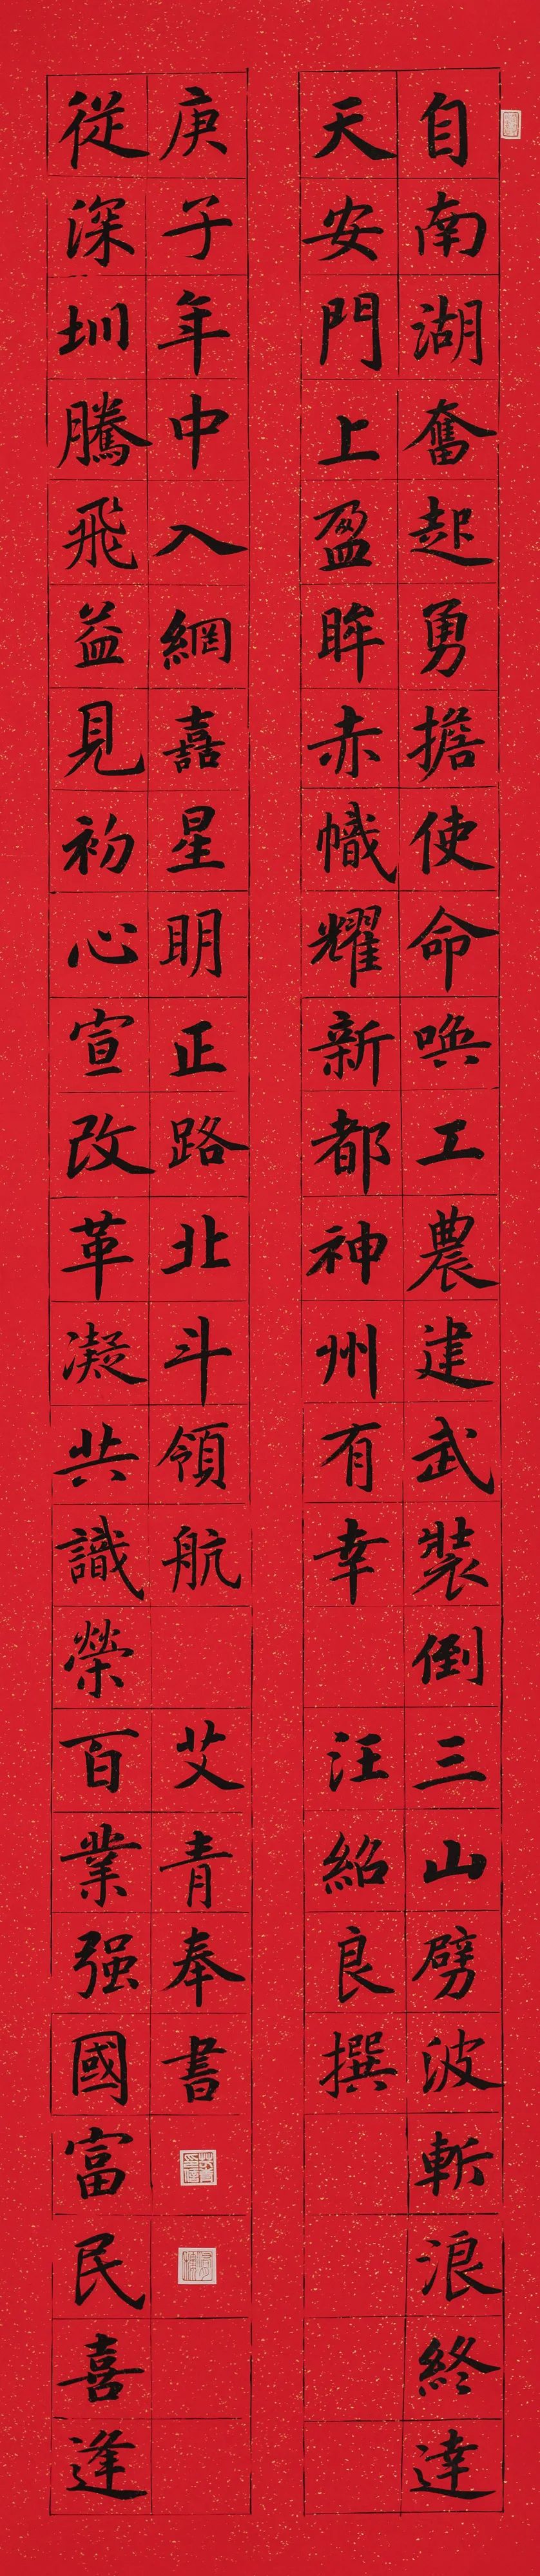 自南湖奮起勇擔使命喚工農建武裝倒三山劈波斬浪終達
天安門上盈眸赤幟耀新都神州有幸 汪紹良撰
從深圳騰飛益見初心宣改革凝共識榮百業强國富民喜逢
庚子年中入網嘉星明正路北斗領航 艾青奉書